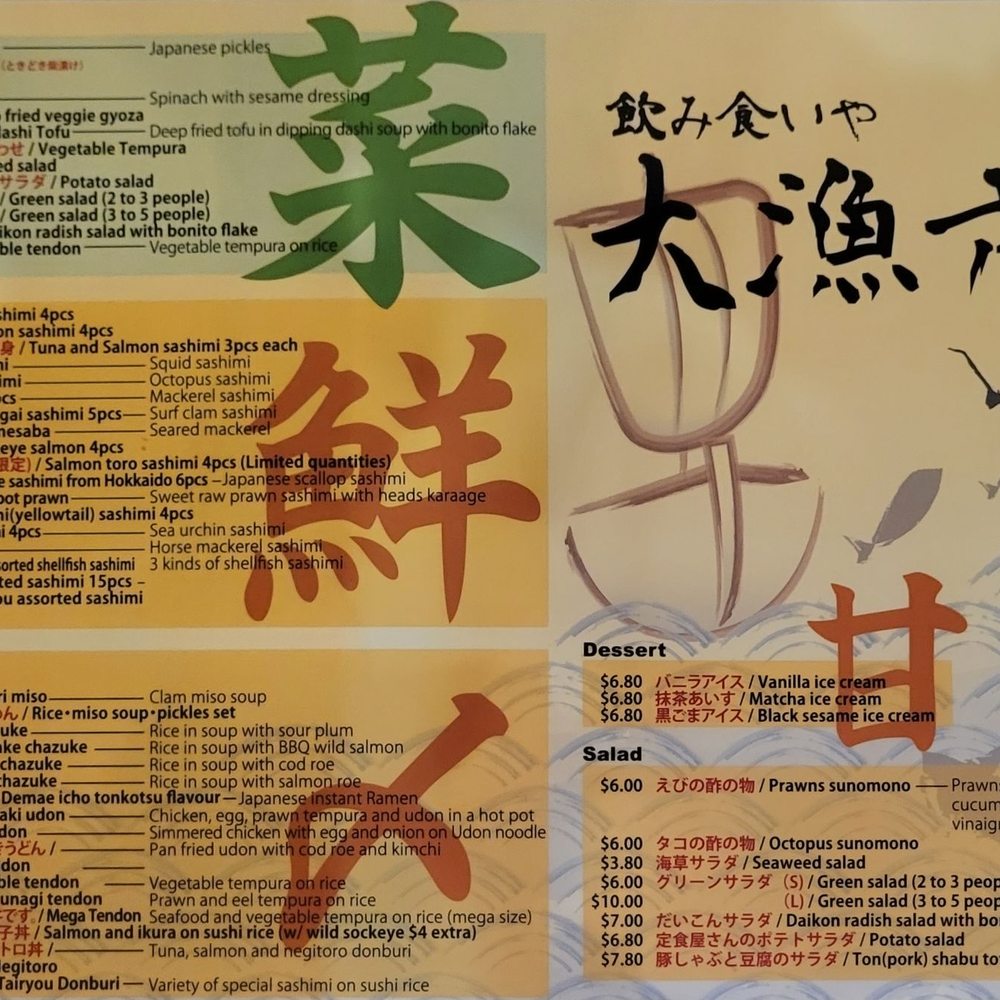 Japanese pickles
(ときどき柴漬け)
Spinach with sesame dressing
fried veggie gyoza
Tofu Deep fried tofu in dipping dashi soup with bonito flake
わせ / Vegetable Tempura
salad
サラダ / Potato salad
/ Green salad (2 to 3 people)
/ Green salad (3 to 5 people)
radish salad with bonito flake
tendon Vegetable tempura on rice
菜
4pcs
sashimi 4pcs
身 / Tuna and Salmon sashimi 3pcs each
Squid sashimi
Octopus sashimi
Mackerel sashimi
sashimi 5pcs Surf clam sashimi
Seared mackerel
salmon 4pcs
限定) / Salmon toro sashimi 4pcs (Limited quantities)
sashimi from Hokkaido 6pcs – Japanese scallop sashimi
prawn Sweet raw prawn sashimi with heads karaage
(yellowtail) sashimi 4pcs
4pcs Sea urchin sashimi
Horse mackerel sashimi
shellfish sashimi 3 kinds of shellfish sashimi
sashimi 15pcs –
assorted sashimi
鮮
miso Clam miso soup
/ Rice・miso soup・pickles set
Rice in soup with sour plum
chazuke Rice in soup with BBQ wild salmon
chazuke Rice in soup with cod roe
chazuke Rice in soup with salmon roe
Demae icho tonkotsu flavour – Japanese instant Ramen
udon Chicken, egg, prawn tempura and udon in a hot pot
Simmered chicken with egg and onion on Udon noodle
うどん / Pan fried udon with cod roe and kimchi
tendon Vegetable tempura on rice
unagi tendon Prawn and eel tempura on rice
です。/ Mega Tendon Seafood and vegetable tempura on rice (mega size)
子丼 / Salmon and ikura on sushi rice (w/ wild sockeye $4 extra)
トロ丼 / Tuna, salmon and negitoro donburi
Negitoro
Tairyou Donburi – Variety of special sashimi on sushi rice
〆
飲み食いや
大漁
甘
Dessert
$6.80 バニラアイス / Vanilla ice cream
$6.80 抹茶あいす / Matcha ice cream
$6.80 黒ごまアイス / Black sesame ice cream
Salad
$6.00 えびの酢の物 / Prawns sunomono — Prawns
$6.00 タコの酢の物 / Octopus sunomono
$3.80 海草サラダ / Seaweed salad
$6.00 グリーンサラダ (S) / Green salad (2 to 3
$10.00 (L) / Green salad (3 to 5
$7.00 だいこんサラダ / Daikon radish salad with
$6.80 定食屋さんのポテトサラダ / Potato salad
$7.80 豚しゃぶと豆腐のサラダ / Ton(pork) shabu